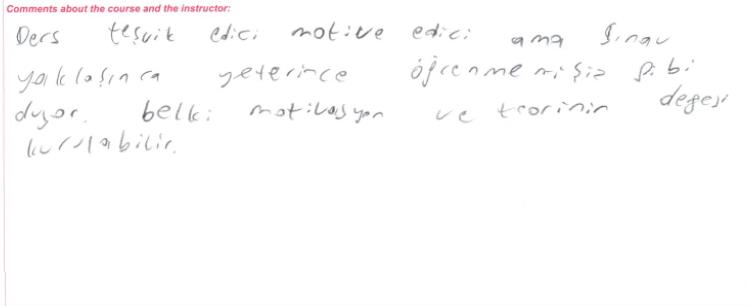 Comments about the course and the instructor:
Ders teşvik edici motive edici ama sınav
yaklaşınca yeterince öğrenmemişiz gibi
duyor. belki motivasyon ve teorinin
kurulabilir.